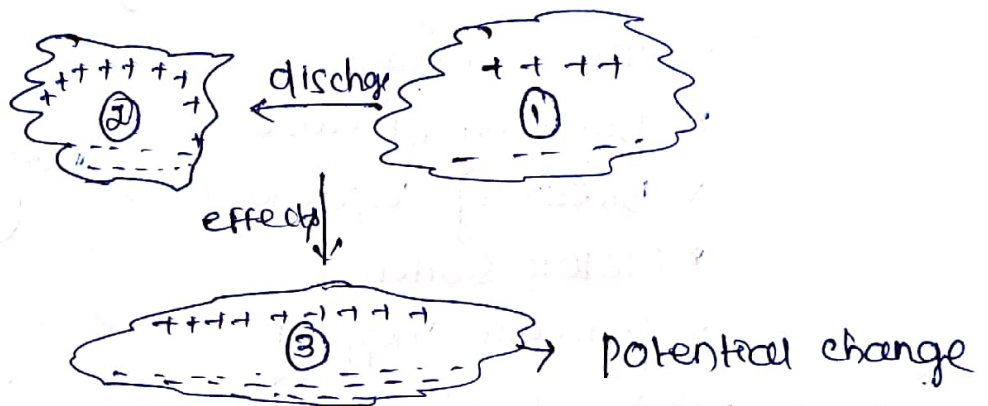 + + + + + + + +
② 
- - - - - - -
dischge
+ + + +
①
- - - -
effects
+ + + + + + + + +
③
- - - - - - - - -
potential change